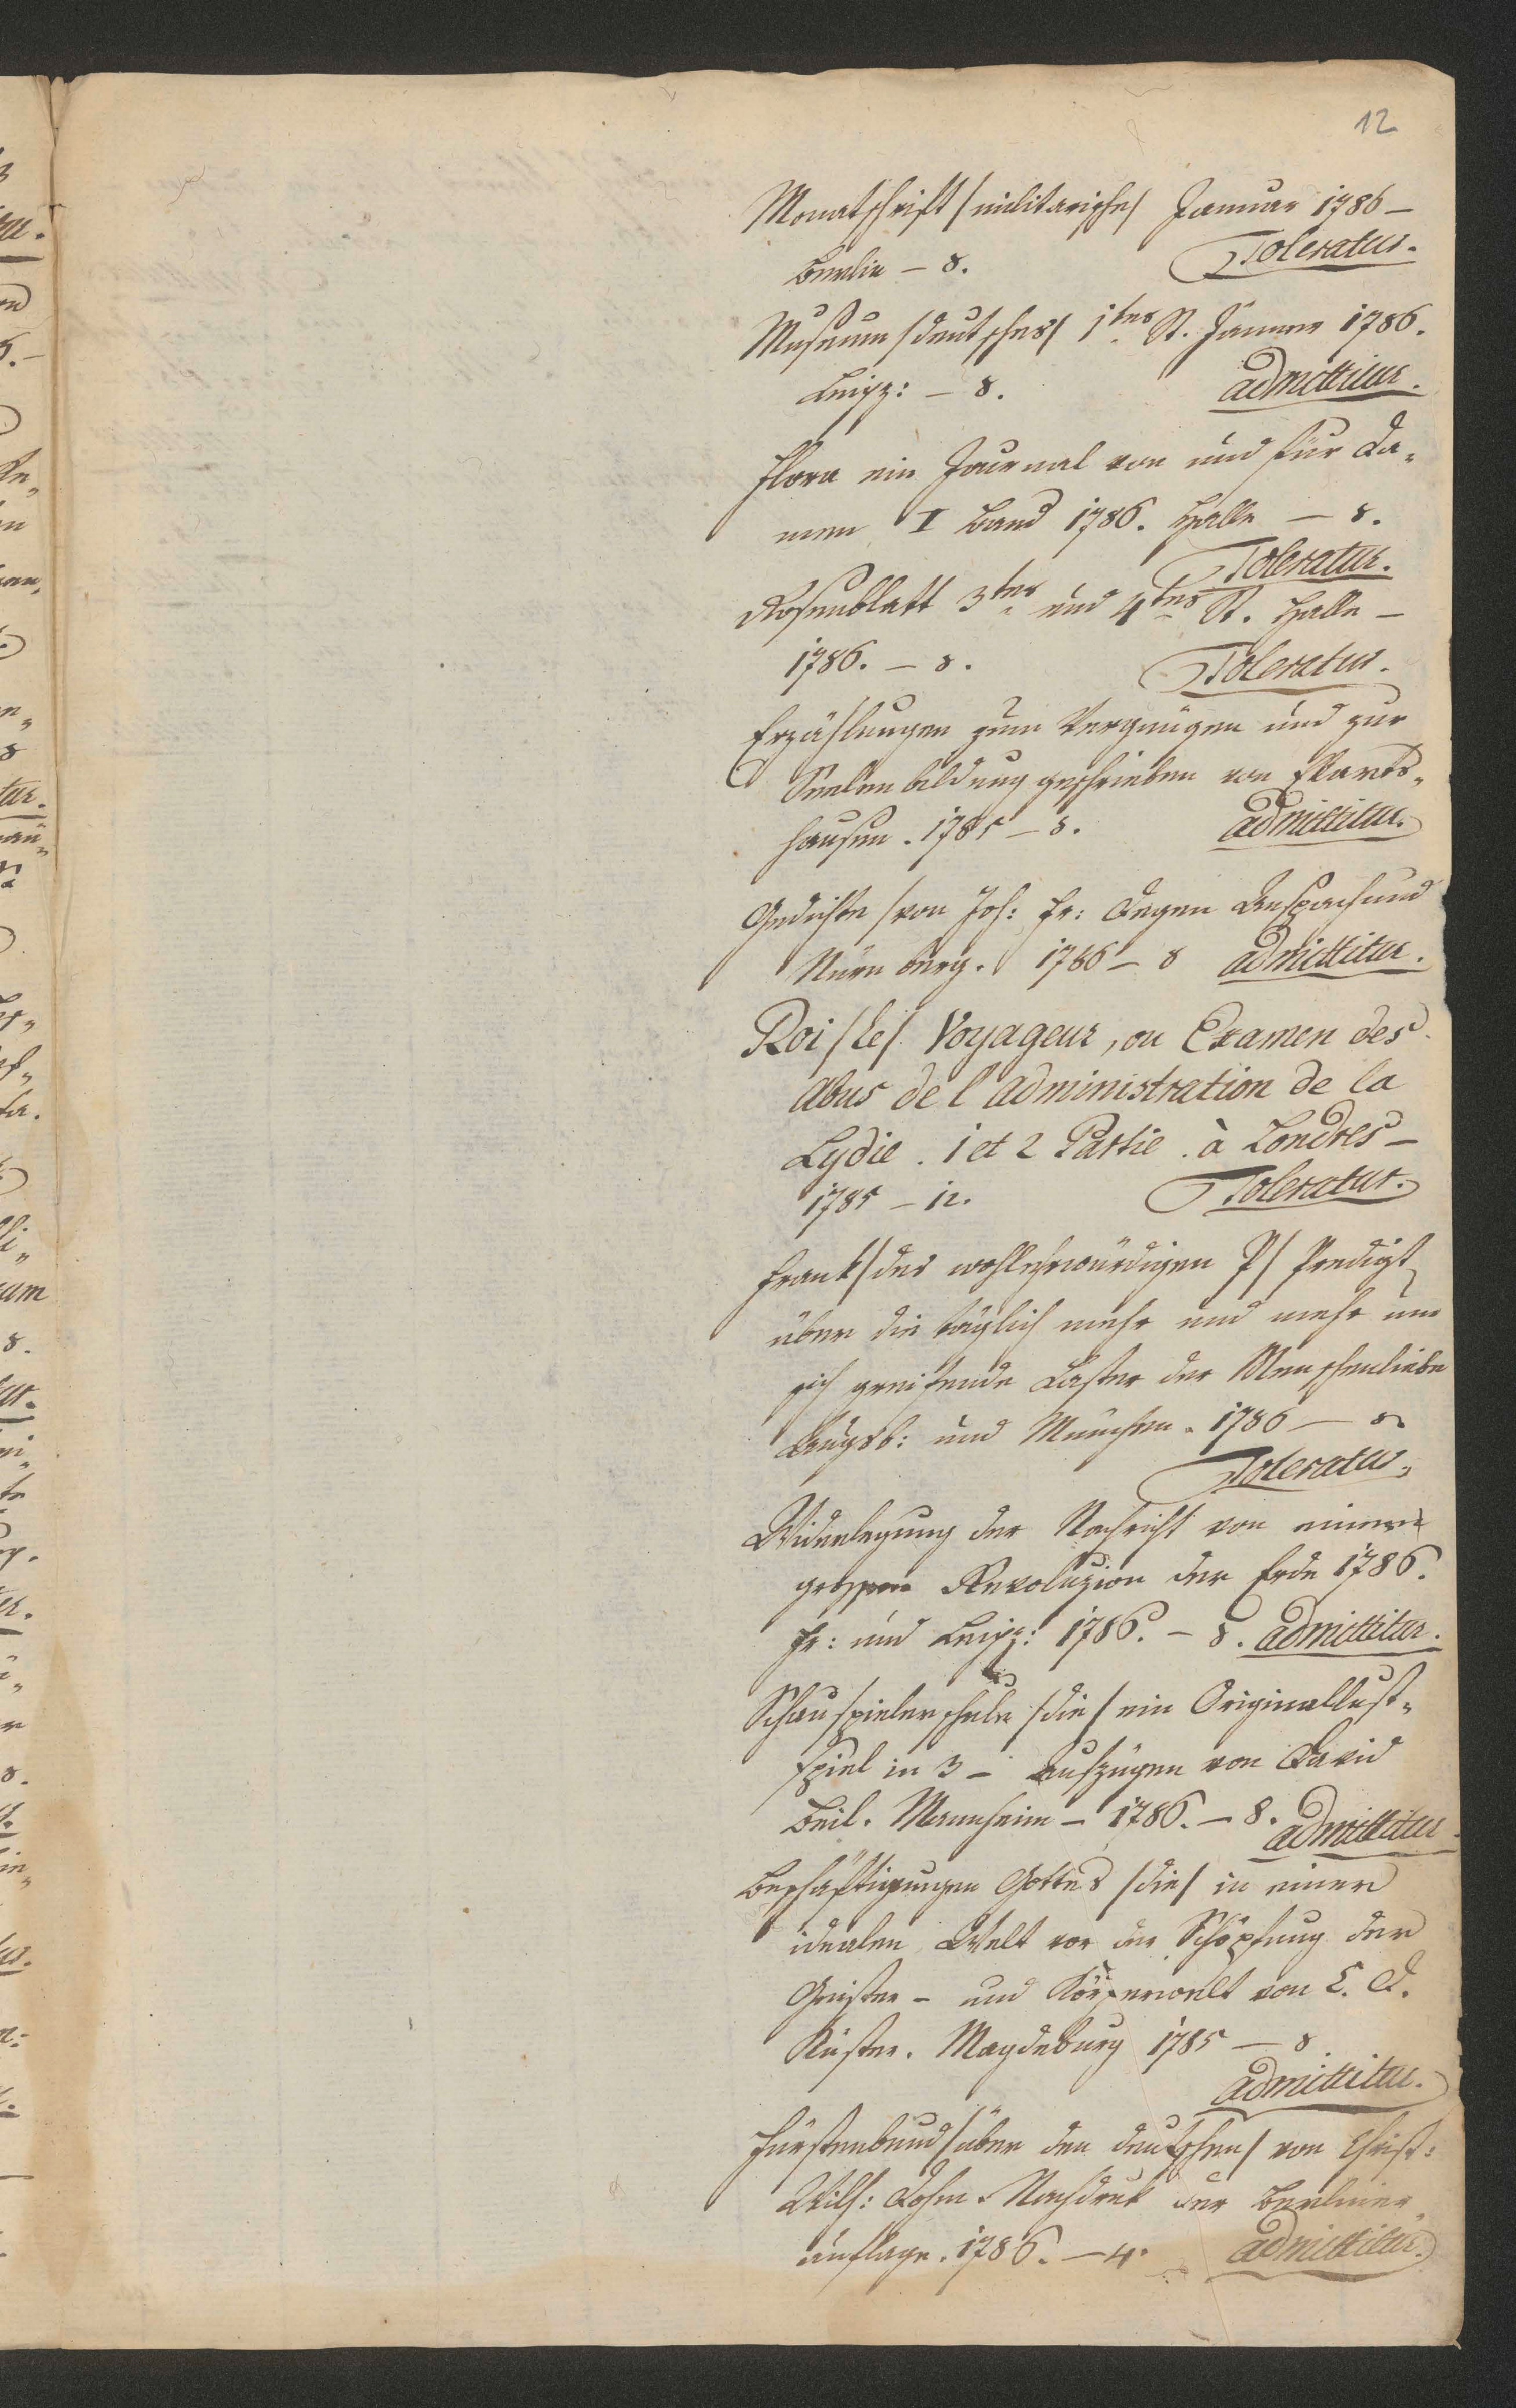 12
Monatschrift /militarische/ Januar 1786 –
Berlin – 8. Toleratur.
Museum /deutsches/ 1tes St. Jänner 1786.
Leipz: – 8. admittitur.
Flora ein Journal von und für Da„
men I Band 1786. Halle – 8.
Toleratur.
Rosenblatt 3tes und 4tes St. Halle –
1786. – 8. Toleratur.
Erzählungen zum Vergnügen und zur
Seelenbildung geschrieben von Ekarts„
hausen. 1785 – 8. admittitur.
Gedichte /von Joh: Fr: Degen Anspach und
Nürnberg. 1786 – 8 admittitur.
Roi /Le/ Voyageur, ou Examen des
Abus de l'Administration de la
Lydie. 1 et 2 Partie. à Londres –
1785 – 12. Toleratur.
Frank /des wohlehrwürdigen P/ Predigt
über die täglich mehr und mehr um
sich greifende Laster der Menschenliebe
Augsb: und München. 1786 – 8
Toleratur.
Widerlegung der Nachricht von einer
grossen Revoluzion der Erde 1786.
Fr: und Leipz: 1786. – 8. admittitur.
Schauspielerschule /die/ ein Originallust„
spiel in 3 – Aufzügen von David
Beil. Mannheim – 1786. – 8. admittitur.
Beschäftigungen Gottes /die/ in einer
idealen Welt vor der Schöpfung der
Geister – und Körperwelt von C. D.
Küster. Magdeburg 1785 – 8
admittitur.
Fürstenbund /über den deutschen/ von Christ:
Wilh: Dohm. Nachdruk der Berliner
auflage. 1786. – 4. admittitur.